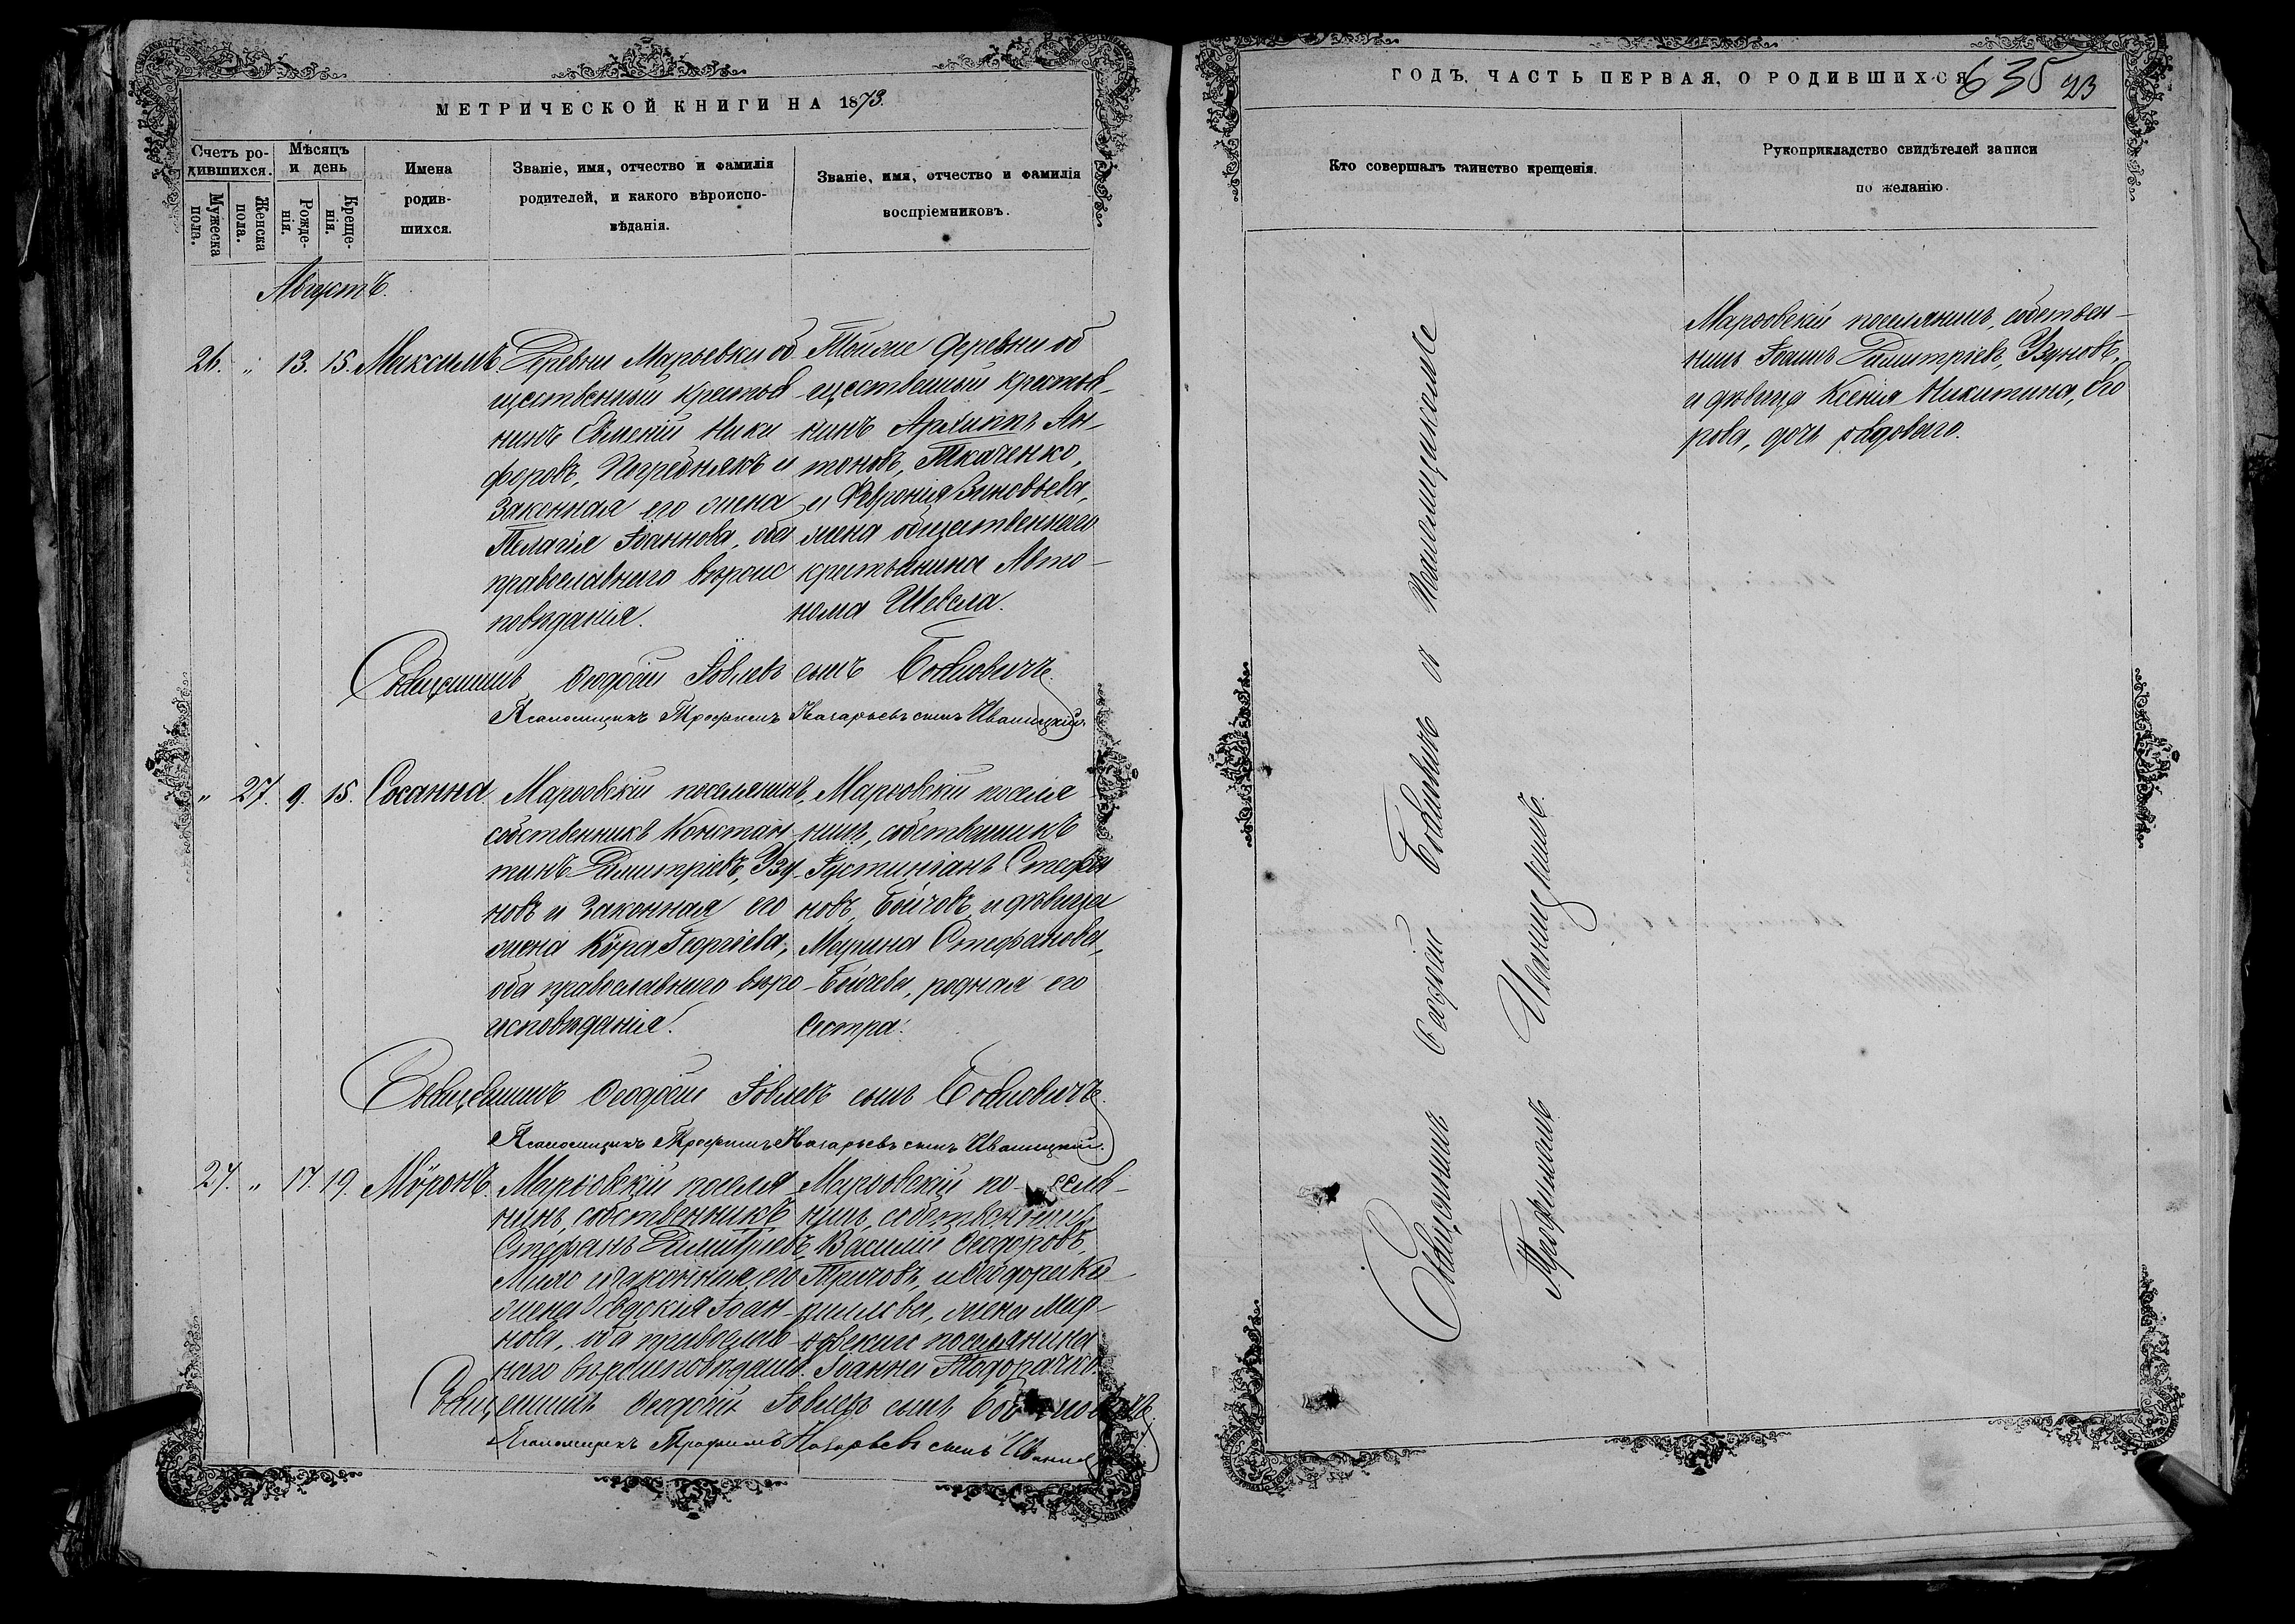 МЕТРИЧЕСКОЙ КНИГИ НА 1873.
Счетъ ро-
дившихся.
Мужеска
пола.
Женска
пола.
Мѣсяцъ
и день
Рожде-
нія.
Креще-
нія.
Имена
родив-
шихся.
Званіе, имя, отчество и фамилія
родителей, и какого вѣроиспо-
вѣданія.
Званіе, имя, отчество и фамилія
воспріемниковъ.
Августъ.
26. „ 13. 15. Максимъ.
Деревни Марьевки об
щественный крестья
нинъ Евменій Ники
форовъ, Погребнякъ и
законная его жена
Пелагія Іоаннова, оба
православнаго вѣроис
повѣданія.
Тойже деревни об
щественный крестья-
нинъ Архиппъ Ан-
тоновъ, Ткаченко,
и Февронія Зиновьева,
жена общественнаго
крестьянина Авто-
нома Шевела.
Священникъ Ѳеодосій Іовлевъ сынъ
Псаломщикъ Трофимъ Назарьевъ сынъ Иваницкій.
„ 27. 9. 15. Сосанна
Марьовскій поселянинъ,
собственникъ Констан
тинъ Димитріевъ, Узу
новъ и законная его
жена Кѵра Георгіева,
оба православнаго вѣро
исповѣданія.
Марьовскій поселя
нинъ, собственникъ
Іустиніанъ Стефа
новъ, Бойчевъ и дѣвица
Марина Стефанова,
Бойчева, родная его
сестра.
Священникъ Ѳеодосій Іовлевъ сынъ
Псаломщикъ Трофимъ Назарьевъ сынъ Иваницкій.
27. „ 17. 19. Мѵронъ.
Марьовскій поселя
нинъ, собственникъ
Стефанъ Димитріевъ
и законная его
жена Евдокія Іоан-
нова, оба православ
наго вѣроисповѣданія.
Марьовскій по-селя-
нинъ, собственникъ
Василій Ѳеодоровъ,
и Ѳеодора
жена Мар-
новскаго поселянина
Іоанна
Священникъ Ѳеодосій Іовлевъ сынъ
Псаломщикъ Трофимъ Назарьевъ сынъ
ГОДЪ, ЧАСТЬ ПЕРВАЯ, О РОДИВШИХСЯ
635 23
Кто совершалъ таинство крещенія.
Рукоприкладство свидѣтелей записи
по желанію.
Священникъ Ѳеодосій и Псаломщикомъ
Трофимомъ Иваницкимъ.
Марьовскій поселянинъ, собствен-
никъ Іоаннъ Димитріевъ, Узуновъ,
и дѣвица Ксенія Никитина, Его
рова, дочь рядового.